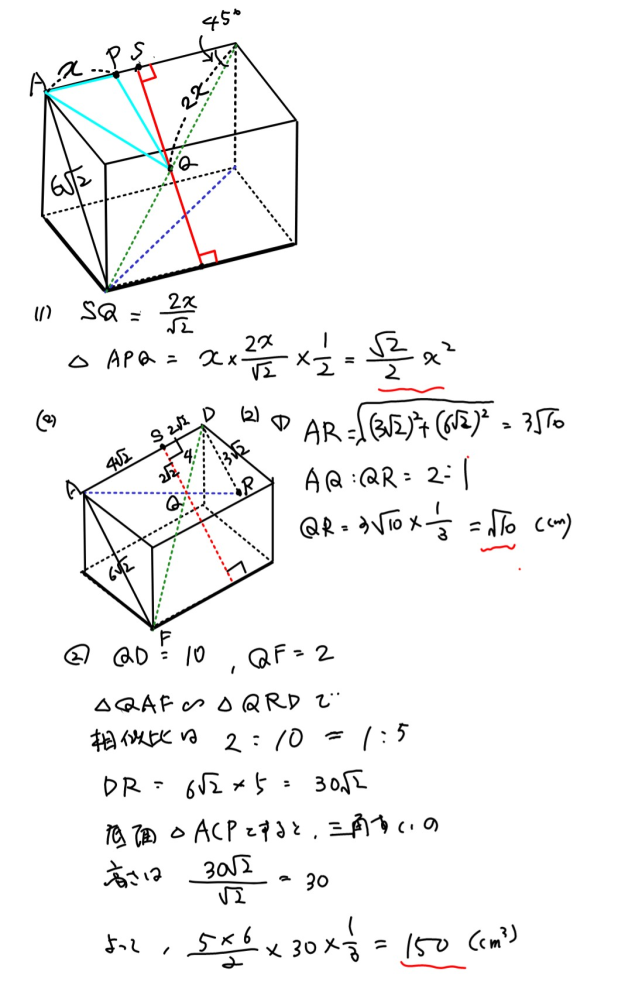 45°
A x P S
2x
Q
6√2
(1) SQ = 2x/√2
△APQ = x × 2x/√2 × 1/2 = √2/2 x²
(2)
A 4√2 S 2√2 D
2√2 4 3√2
Q R
6√2
F
(2) ① AR = √((3√2)²+(6√2)²) = 3√10
AQ : QR = 2 : 1
QR = 3√10 × 1/3 = √10 (cm)
② QD = 10 , QF = 2
△QAF ∽ △QRD で
相似比は 2 : 10 = 1 : 5
DR = 6√2 × 5 = 30√2
底面 △ACPとすると, 三角すいの
高さは 30√2/√2 = 30
よって, 5×6/2 × 30 × 1/3 = 150 (cm³)